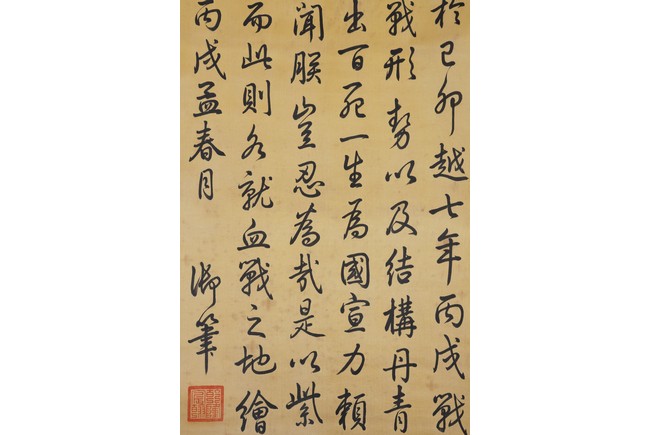 於已卯越七年丙戌戰
戰形勢以及結構丹青
出百死一生為國宣力賴
聞朕豈忍為哉是以紫
而此則各就血戰之地繪
丙戌孟春月
御筆